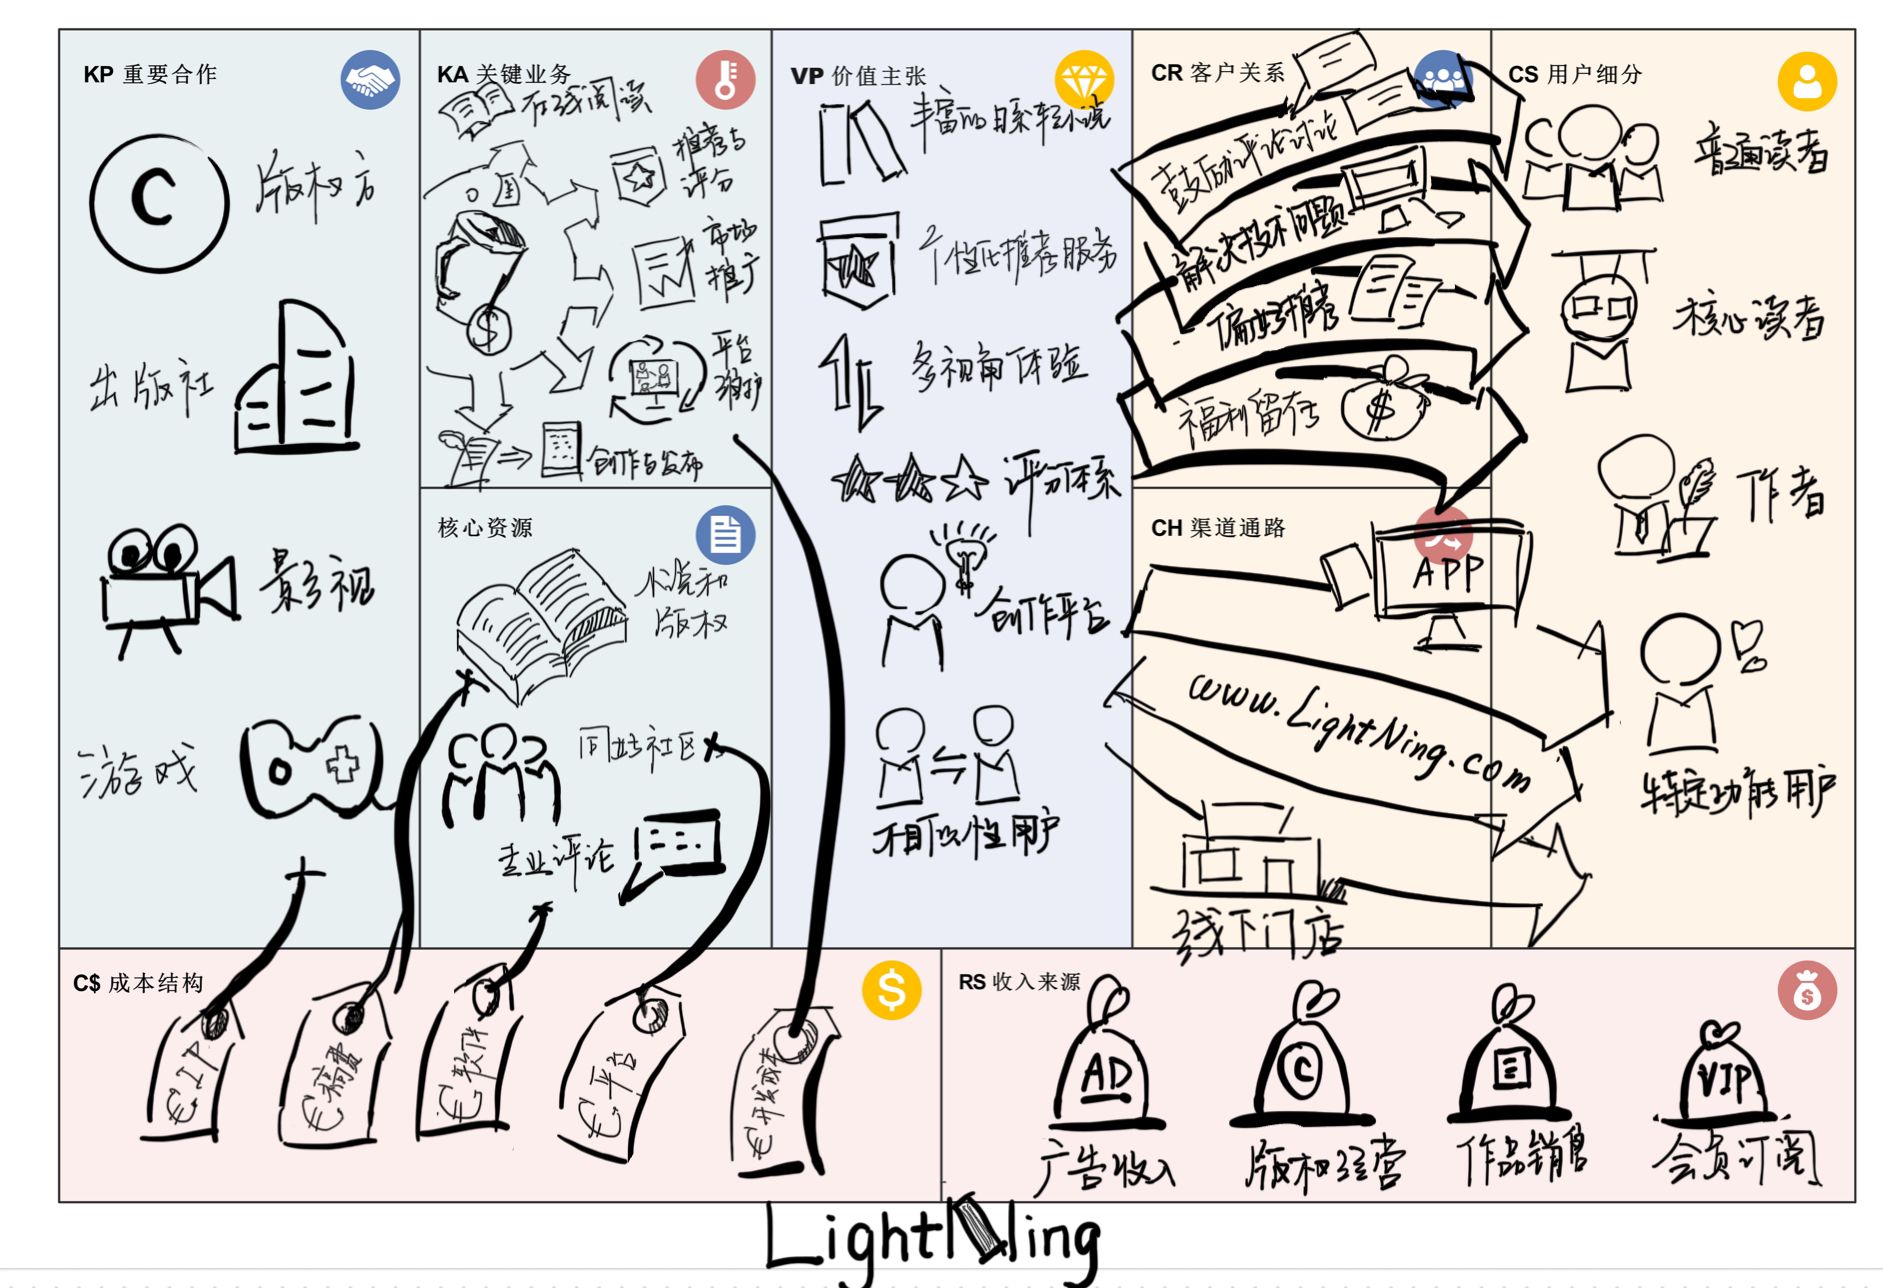 KP 重要合作
C
版权方
出版社
影视
游戏
KA 关键业务
在线阅读
推荐与
评分
市场
推广
$
平台
维护
创作与发布
核心资源
小说和
版权
同好社区
专业评论
VP 价值主张
丰富的日系轻小说
个性化推荐服务
多视角体验
评分体系
创作平台
相似性用户
CR 客户关系
鼓励评论讨论
解决技术问题
偏好推荐
福利留存
$
CH 渠道通路
APP
www.LightNing.com
线下门店
CS 用户细分
普通读者
核心读者
作者
特定功能用户
C$ 成本结构
€ IP
€ 稿费
€ 软件
€ 平台
€ 开发成本
RS 收入来源
AD
广告收入
C
版权经营
作品销售
VIP
会员订阅
LightNing